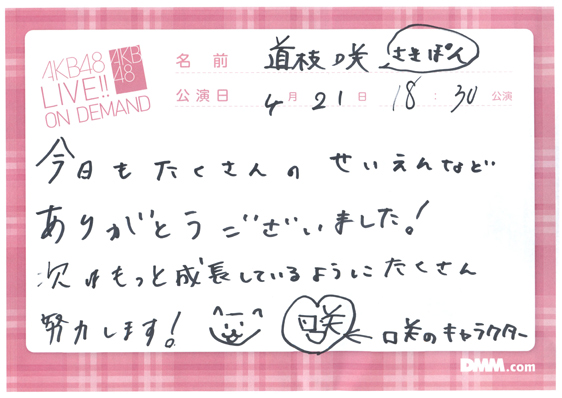 AKB48
LIVE!!
ON DEMAND
AKB
48
名前 道枝咲 さきぽん
公演日 4月21日 18:30 公演
今日もたくさんのせいえんなど
ありがとうございました!
次はもっと成長しているようにたくさん
努力します! 咲 ← 咲のキャラクター
DMM.com